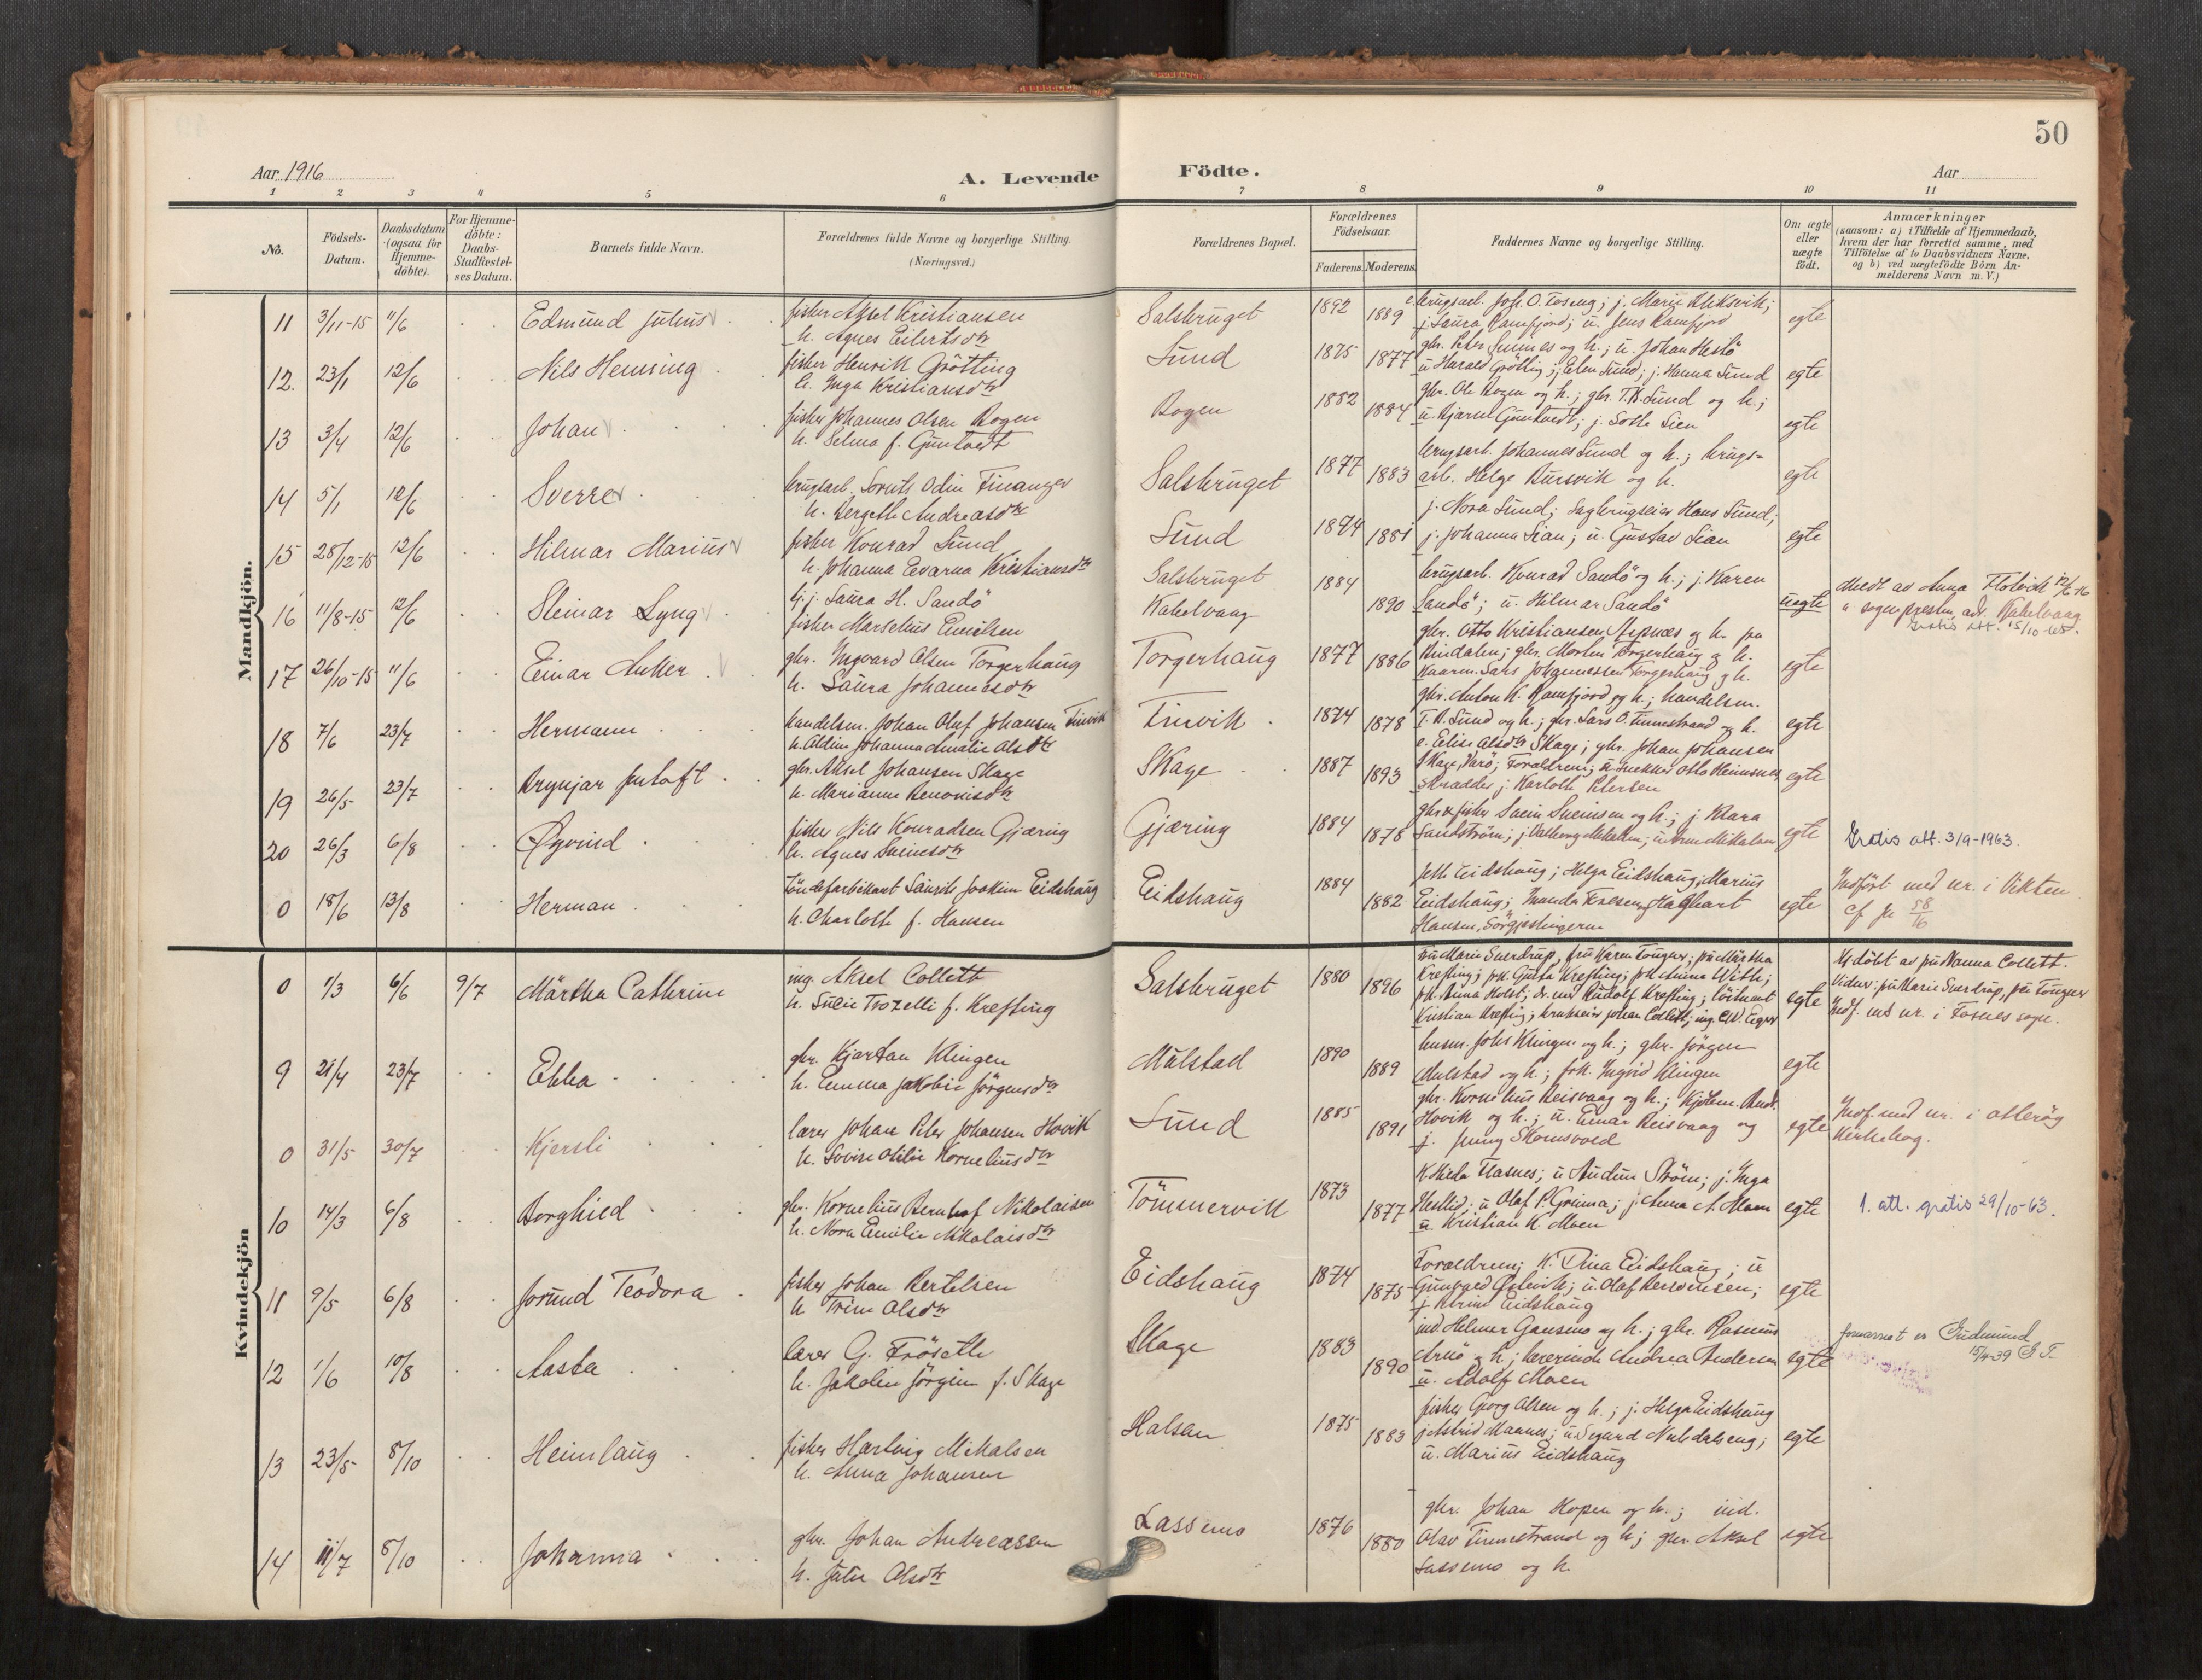 50
Aar 1916
A. Levende
Födte.
Aar
1 2 3 4 5 6 7 8 9 10 11
No.
Födsels-
Datum.
Daabsdatum
(ogsaa for
Hjemme-
döbte).
For Hjemme-
döbte:
Daabs-
Stadfæstel-
ses Datum.
Barnets fulde Navn.
Forældrenes fulde Navne og borgerlige Stilling.
(Næringsvei.)
Forældrenes Bopæl.
Forældrenes
Födselsaar.
Faderens. Moderens.
Faddernes Navne og borgerlige Stilling.
Om ægte
eller
uægte
födt.
Anmærkninger
(saasom: a) i Tilfælde af Hjemmedaab,
hvem der har forrettet samme, med
Tilföielse af to Daabsvidners Navne,
og b) ved uægtefödte Börn An-
melderens Navn m. V.)
Mandkjön.
11 3/11-15 11/6 Edmund Julius
fisker Aksel Kristiansen
h. Agnes Eilertsdtr
Salsbruget 1892 1889
brugsarb. Joh. O. Foseng; j. Marie
j. Laura Ramfjord; u. Jens Ramfjord
egte
12. 23/1 12/6 Nils Henning
fisker Henrik Grötting
h. Inga Kristiansdtr
Sund 1875 1877
gbr. Peter og h.; u. Johan
u Harald Grötting; j. Elen Sund; j. Hanna Sund
egte
13 3/4 12/6 Johan
fisker Johannes Olsen Bogen
h. Selma f. Guntvedt
Bogen 1882 1884
gbr. Ole Bogen og h.; gbr. T. B. Sund og h.;
u. Bjarne Guntvedt; j. Sien
egte
14 5/1 12/6 Sverre
brugsarb. Odin Finanger
h. Bergitte Andreasdtr
Salsbruget 1877 1883
brugsarb. Johannes Sund og h.; brugs-
arb. Helge Bursvik og h.
egte
15 28/12-15 12/6 Hilmar Marius
fisker Konrad Sund
h. Johanna Evarna Kristiansdtr
Sund 1874 1881
j. Nora Sund; Sagbrugseier Hans Sund;
j. Johanna Sian; u. Gustav Sian
egte
16 11/8-15 12/6 Steinar Lyng
tj. j. Laura H. Sandö
fisker Marselius Emilsen
Salsbruget
Kabelvaag
1884 1890
brugsarb. Konrad Sandö og h.; j. Karen
Sandö; u. Hilmar Sandö
uegte
Medt av Anna 12/6-16
a sognepresten adr. Kabelvaag
Gratis att. 15/10-65.
17 26/10-15 11/6 Einar Anker
gbr. Ingvard Olsen Torgerhaug
h. Laura Johannesdtr
Torgerhaug 1877 1886
gbr. Otto Kristiansen og h. fra
Rindalen; gbr. Morten Torgerhaug og h.
Lars Johannessen Torgerhaug og h.
egte
18 7/6 23/7 Hermann
handelsm. Johan Oluf Johansen Finvik
h. Aldine Johanna Amalie Olsdtr
Finvik 1874 1878
gbr. Anton K. Ramfjord og h.; handelsm.
T. B. Sund og h.; gbr. Lars O. Finnestrand og h.
egte
19 26/5 23/7 Brynjar
gbr. Aksel Johansen Skage
h. Marianne Benonisdtr
Skage 1887 1893
e. Elise Olsdtr Skage; gbr. Johan Johansen
Skage, Varö; Forældrene; Otto
Skradder j. Karlotte Petersen
egte
20 26/3 6/8 Øyvind
fisker Nils Konradsen Gjæring
h. Agnes Sveinsdtr
Gjæring 1884 1878
gbr & fisker Svein Sveinsen og h.; j. Klara
Sandström; j. Valborg Mikalsen; u. Mikalsen
egte
Gratis att. 3/9-1963.
0 18/6 13/8 Herman
Töndefabrikant Laurits Joakim Eidshaug
h. Charlotte f. Hansen
Eidshaug 1884 1882
Jette Eidshaug; Helga Eidshaug, Marius
Eidshaug; Hansen,
egte
Indfört med nr. i Vikten
cf fr 58/16
Kvindekjön
0 1/3 6/6 9/7 Märtha Cathrine
ing. Aksel Collett
h. f. Krefting
Salsbruget 1880 1896
fru Marie Sverdrup, fru Karen Tongur; fru Märtha
Krefting; frk. Gusta Krefting; frk Anna With;
frk. Anna Holst; dr. med Rudolf Krefting; löitnant
Kristian Krefting; brukseier Johan Collett; ing. C.W. Eiger
egte
Hj döbt av fru Nanna Collett.
Vidner: fru Marie Sverdrup, fru Tongur
Indf. med nr. i Fosnes sogn.
9 21/4 23/7 Ebba
gbr. Kjartan Klingen
h. Emma Jakobie Jörgensdtr
Mulstad 1890 1889
husm. Johs Klingen og h.; gbr. Jörgen
Mulstad og h.; frk. Ingrid Klingen
egte
0 31/5 30/7 Kjersti
lærer Johan Peter Johansen Hovik
h. Lovise Otilie Korneliusdtr
Sund 1885 1891
gbr. Kornelius Reisvaag og h.; Kjöbm.
Hovik og h.; u. Einar Reisvaag og
j. Jenny Skomsvold
egte
Indf. med nr. i Otterög
Kirkebog.
10 14/3 6/8 Borghild
gbr. Kornelius Bernhof Nikolaisen
h. Nora Emilie Nikolaisdtr
Tömmervik 1873 1877
K. Hilda Flasnes; u Audun Ström; j. Inga
u. Olaf P. Grinna; j. Anna A. Moen
u. Kristian K. Moen
egte
1. att. gratis 29/10-63.
11 9/5 6/8 Jorund Teodora
fisker Johan Bertelsen
h Trine Olsdtr
Eidshaug 1874 1875
Forældrene; K. Dina Eidshaug; u
Gunvald; u. Olaf;
j Eidshaug
egte
12 1/6 10/8 Aasta
lærer G. Fröseth
h. Jakobie Jörgine f. Skage
Skage 1883 1890
ind. Helmer Gansmo og h.; gbr. Rasmus
Arnö og h.; lærerinde Andrea Andersen
u. Adolf Moen
egte
fornavnet er Gudmund
15/4-39 G T
13 23/5 8/10 Heimlaug
fisker Hartvig Mikalsen
h. Anna Johansen
Halsan 1875 1883
fisker Georg Olsen og h.; j. Helga Eidshaug
j. Astrid; u Sigurd;
u. Marius Eidshaug
egte
14 11/7 8/10 Johanna
gbr. Johan Andreassen
h. Jutte Olsdtr
Lassemo 1876 1880
gbr. Johan Kopen og h.; ind.
Olav Finnestrand og h; gbr. Aksel
Lassemo og h.
egte